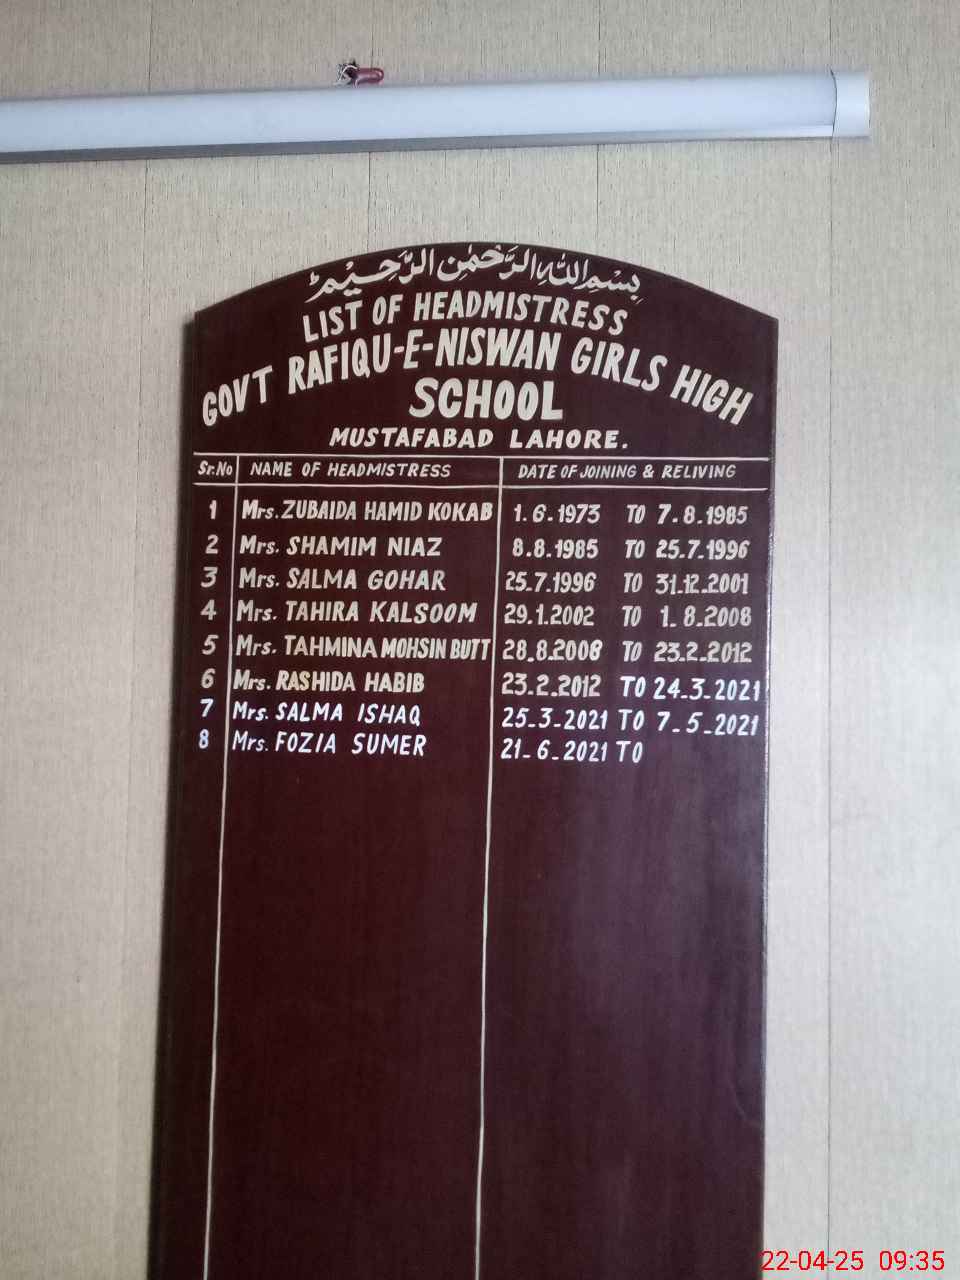 بِسْمِ اللهِ الرَّحْمٰنِ الرَّحِيْمِ
LIST OF HEADMISTRESS
GOVT RAFIQU-E-NISWAN GIRLS HIGH
SCHOOL
MUSTAFABAD LAHORE.
Sr.No NAME OF HEADMISTRESS DATE OF JOINING & RELIVING
1 Mrs. ZUBAIDA HAMID KOKAB 1.6.1973 TO 7.8.1985
2 Mrs. SHAMIM NIAZ 8.8.1985 TO 25.7.1996
3 Mrs. SALMA GOHAR 25.7.1996 TO 31.12.2001
4 Mrs. TAHIRA KALSOOM 29.1.2002 TO 1.8.2008
5 Mrs. TAHMINA MOHSIN BUTT 28.8.2008 TO 23.2.2012
6 Mrs. RASHIDA HABIB 23.2.2012 TO 24.3.2021
7 Mrs. SALMA ISHAQ 25-3-2021 TO 7-5-2021
8 Mrs. FOZIA SUMER 21-6-2021 TO
22-04-25 09:35